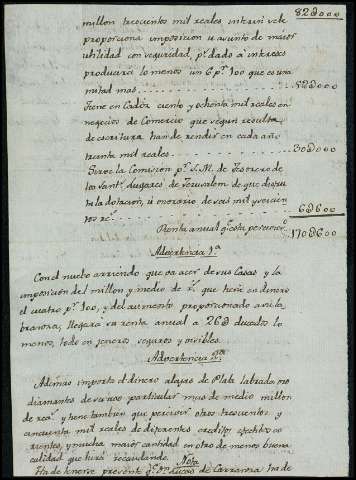 82ꝺ000
millon trecientos mil reales interin se le
proporciona imposicion u asunto de maior
utilidad con seguridad, pr. dado à intereses
producirá lo menos un 6 pr. 100 que es una
mitad mas 52ꝺ000
Tiene en Cadiz ciento y ochenta mil reales en
negocios de Comercio que segun resulta
de escritura han de rendir en cada año
treinta mil reales 30ꝺ000
Sirve la Comision pr. S.M. de Tesorero de
los Santos Lugares de Jerusalem de que disfru
ta la dotacion, ú onorario de seis mil y seiscien
tos rs. 6ꝺ600
Renta anual qe. esta persiviendo 170ꝺ600
Advertencia 1a.
Con el nuebo arriendo que va acer de sus Casas y la
imposicion del millon y medio de rs. que tiene en dinero
el cuatro pr. 100, y del aumento proporcionado à su la
branza, llegara su renta anual a 26ꝺ ducados lo
menos, todo en jeneros seguros y visibles.
Advertencia 2a.
Ademas importa el dinero alajas de Plata labrada, y
diamantes de su uso particular mas de medio millon
de reas. y tiene tambien que percivir otros trescientos y
cincuenta mil reales de diferentes creditos efectibos co
rrientes, y mucha maior cantidad en otro de menos buena
calidad que hirá recaudando. Nota
Ha de tenerse presente qe. Dn. Lucas de Carranza ha de